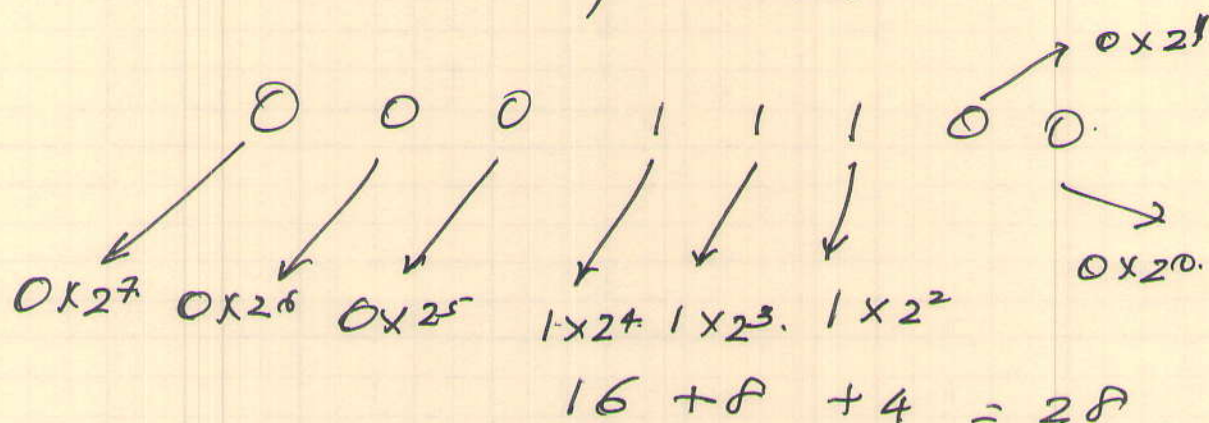 0 x 2¹
0 0 0 1 1 1 0 0.
0 x 2⁷ 0 x 2⁶ 0 x 2⁵ 1 x 2⁴ 1 x 2³. 1 x 2² 0 x 2⁰.
16 + 8 + 4 = 28